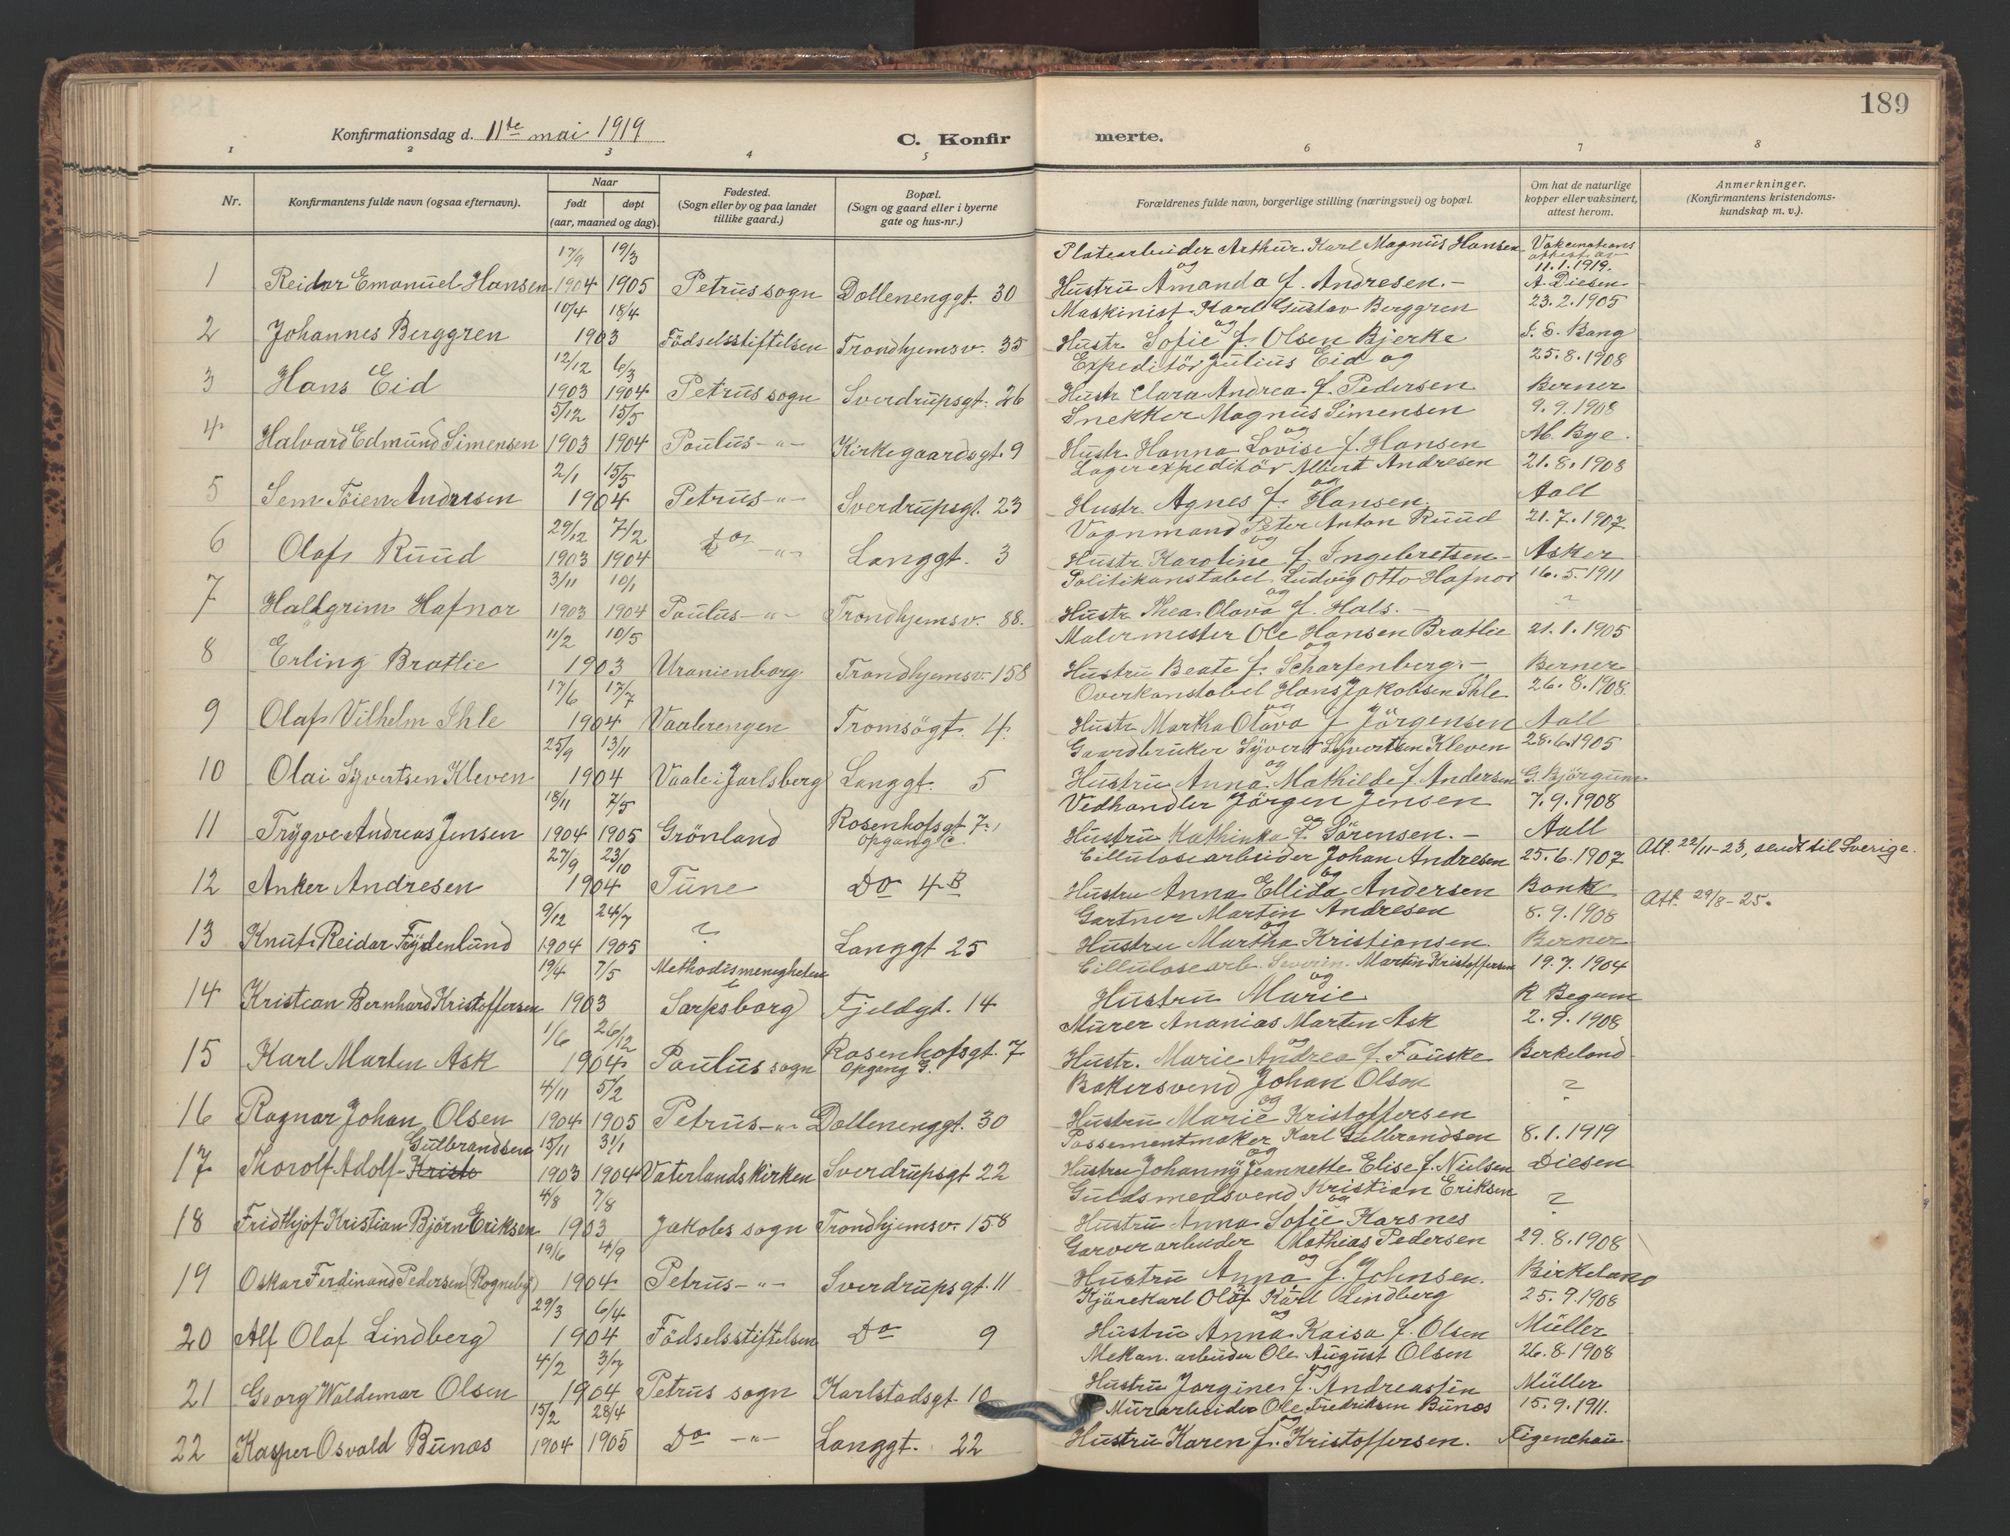 189
Konfirmationsdag d. 11te mai 1919
C. Konfirmerte.
1 2 3 4 5 6 7 8
Nr. Konfirmantens fulde navn (ogsaa efternavn). Naar født døpt (aar, maaned og dag). Fødested. (Sogn eller by og paa landet tillike gaard.) Bopæl. (Sogn og gaard eller i byerne gate og hus-nr.) Forældrenes fulde navn, borgerlige stilling (næringsvei) og bopæl. Om hat de naturlige kopper eller vaksinert, attest herom. Anmerkninger. (Konfirmantens kristendomskundskap m. v.).
1 Reidar Emanuel Hansen 17/9 1904 19/3 1905 Petrus sogn Dollenenggt. 30 Platearbeider Arthur Karl Magnus Hansen og Hustru Amanda f. Andresen.- Vakcinations attest av 11.1.1919. A. Diesen
2 Johannes Berggren 10/4 18/4 1903 Födselsstiftelsen Trondhjemsv. 35 Maskinist Karl Gustav Berggren og Hustr. Sofie f. Olsen Bjerke 23.2.1905 Bang
3 Hans Eid 12/12 1903 6/3 1904 Petrus sogn Sverdrupsgt. 26 Expeditör Julius Eid og Hustr. Clara Andrea f. Pedersen 25.8.1908 Berner
4 Halvard Edmund Simensen 5/12 1903 15/5 1904 Paulus -"- Kirkegaardsgt. 9 Snekker Magnus Simensen og Hustr. Hanna Lovise f. Hansen 9.9.1908 M. Bye.
5 Sem Töien Andresen 2/1 15/5 1904 Petrus -"- Sverdrupsgt. 23 Lagerexpeditör Albert Andresen og Hustr. Agnes f. Hansen. 21.8.1908 Aall
6 Olaf Ruud 29/12 1903 7/2 1904 Do -"- Langgt. 3 Vognmand Peter Anton Ruud og Hustr. Karoline f. Ingebretsen- 21.7.1907 Asker
7 Hallgrim Hafnor 3/11 1903 10/1 1904 Paulus -"- Trondhjemsv. 88. Politikonstabel Ludvig Otto Hafnor og Hustr. Thea Olava f. Hals.- 16.5.1911 ?
8 Erling Bratlie 11/2 10/5 1903 Uranienborg Trondhjemsv. 158 Malermester Ole Hansen Bratlie og Hustru Beate f. Scharfenberg.- 21.1.1905 Berner
9 Olaf Vilhelm Ihle 17/6 17/7 1904 Vaalerengen Tromsögt. 4. Overkonstabel Hans Jakobsen Ihle og Hustr. Martha Olava f. Jörgensen 26.8.1908. Aall
10 Olai Syvertsen Kleven 25/9 13/11 1904 Vaale i Jarlsberg Langgt. 5 Gaardbruker Syvert Syvertsen Kleven og Hustru Anna Mathilde f. Andersen 28.6.1905 G. Björgum
11 Trygve Andreas Jensen 18/11 1904 7/5 1905 Grönland Rosenhofsgt 7, Opgang C. Vedhandler Jörgen Jensen og Hustru Kathinka f. Sörensen.- 7.9.1908 Aall
12 Anker Andresen 27/9 23/10 1904 Tune Do 4B Cillulosearbeider Johan Andresen og Hustru Anna Ellida Andersen 25.6.1907 Bonk Att. 22/11-23, sendt til Sverige.
13 Knut Reidar Frydenlund 9/12 1904 24/7 1905 ? Langgt 25 Gartner Martin Andresen og Hustru Martha Kristiansen. 8.9.1908 Berner Att. 29/8-25.
14 Kristian Bernhard Kristoffersen 19/4 7/5 1903 Methodismenigheten i Sarpsborg Fjeldgt. 14 Cillulosearb. Severin Martin Kristoffersen og Hustru Marie 19.7.1904 R Begum
15 Karl Marten Ask 1/6 26/12 1904 Paulus sogn Rosenhofsgt. 7 Opgang G. Murer Ananias Marten Ask og Hustr. Marie Andrea f. Fauske 2.9.1908 Berkeland
16 Ragnar Johan Olsen 4/11 1904 5/2 1905 Petrus -"- Dollenenggt. 30 Bakersvend Johan Olsen og Hustru Marie Kristoffersen ?
17 Thorolf Adolf Kristo Gulbrandsen 15/11 1903 31/1 1904 Vaterlandskirken Sverdrupsgt 22 Possementmaker Karl Gulbrandsen og Hustru Johanny Jeannette Elise f. Nielsen 8.1.1919 Diesen
18 Fridthjof Kristian Björn Eriksen 4/8 7/8 1903 Jakobs sogn Trondhjemsv. 158 Guldsmedsvend Kristian Eriksen og Hustru Anna Sofie Karsnes ?
19 Oskar Ferdinand Pedersen (Rogneby) 19/6 4/9 1904 Petrus -"- Sverdrupsgt. 11 Garverarbeider Mathias Pedersen og Hustru Anna f. Johnsen. 29.8.1908 Birkeland
20 Alf Olaf Lindberg 29/3 6/4 1904 Födselsstiftelsen Do 9 Kjörekarl Olaf Karl Lindberg og Hustru Anna Kaisa f. Olsen 25.9.1908 Müller
21 Georg Waldemar Olsen 4/2 3/7 1904 Petrus sogn Karlstadsgt. 10 Mekan. arbeider Ole August Olsen og Hustru Jorgine f. Andreassen 26.8.1908 Müller
22 Kasper Osvald Bunæs 15/2 1904 28/4 1905 Do -"- Langgt. 22 Murarbeider Ole Fredriksen Bunæs og Hustru Karen f. Kristoffersen. 15.9.1911. Figenchau